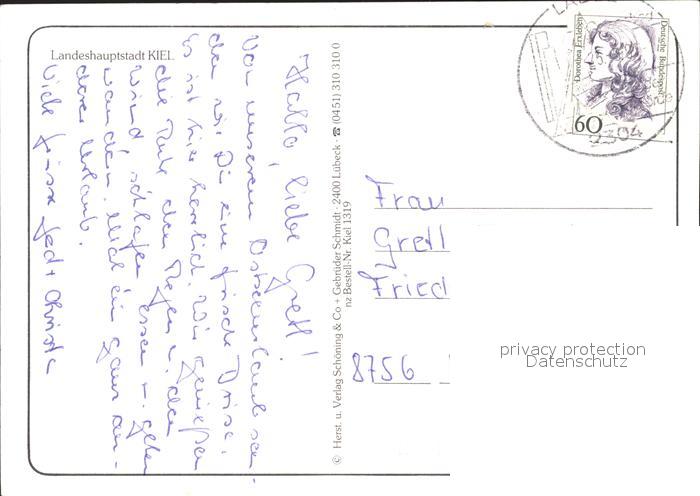 Landeshauptstadt KIEL
Hallo, liebe Gretl!
Von unserem Ostseeurlaub sen-
den wir Dir eine frische Brise.
Es ist hier herrlich. Wir genießen
die Ruhe, den Regen u. den
Wind, schlafen, essen u. gehen
wandern. Mich ein ganz an-
derer Urlaub.
Viele Grüsse
© Herst. u. Verlag Schöning & Co + Gebrüder Schmidt · 2400 Lübeck · ☎ (0451) 310 310 0
nz Bestell-Nr. Kiel 1319
Dorothea Erxleben
Deutsche Bundespost
60
2304
Frau
Gretl
Fried
8756
privacy protection
Datenschutz